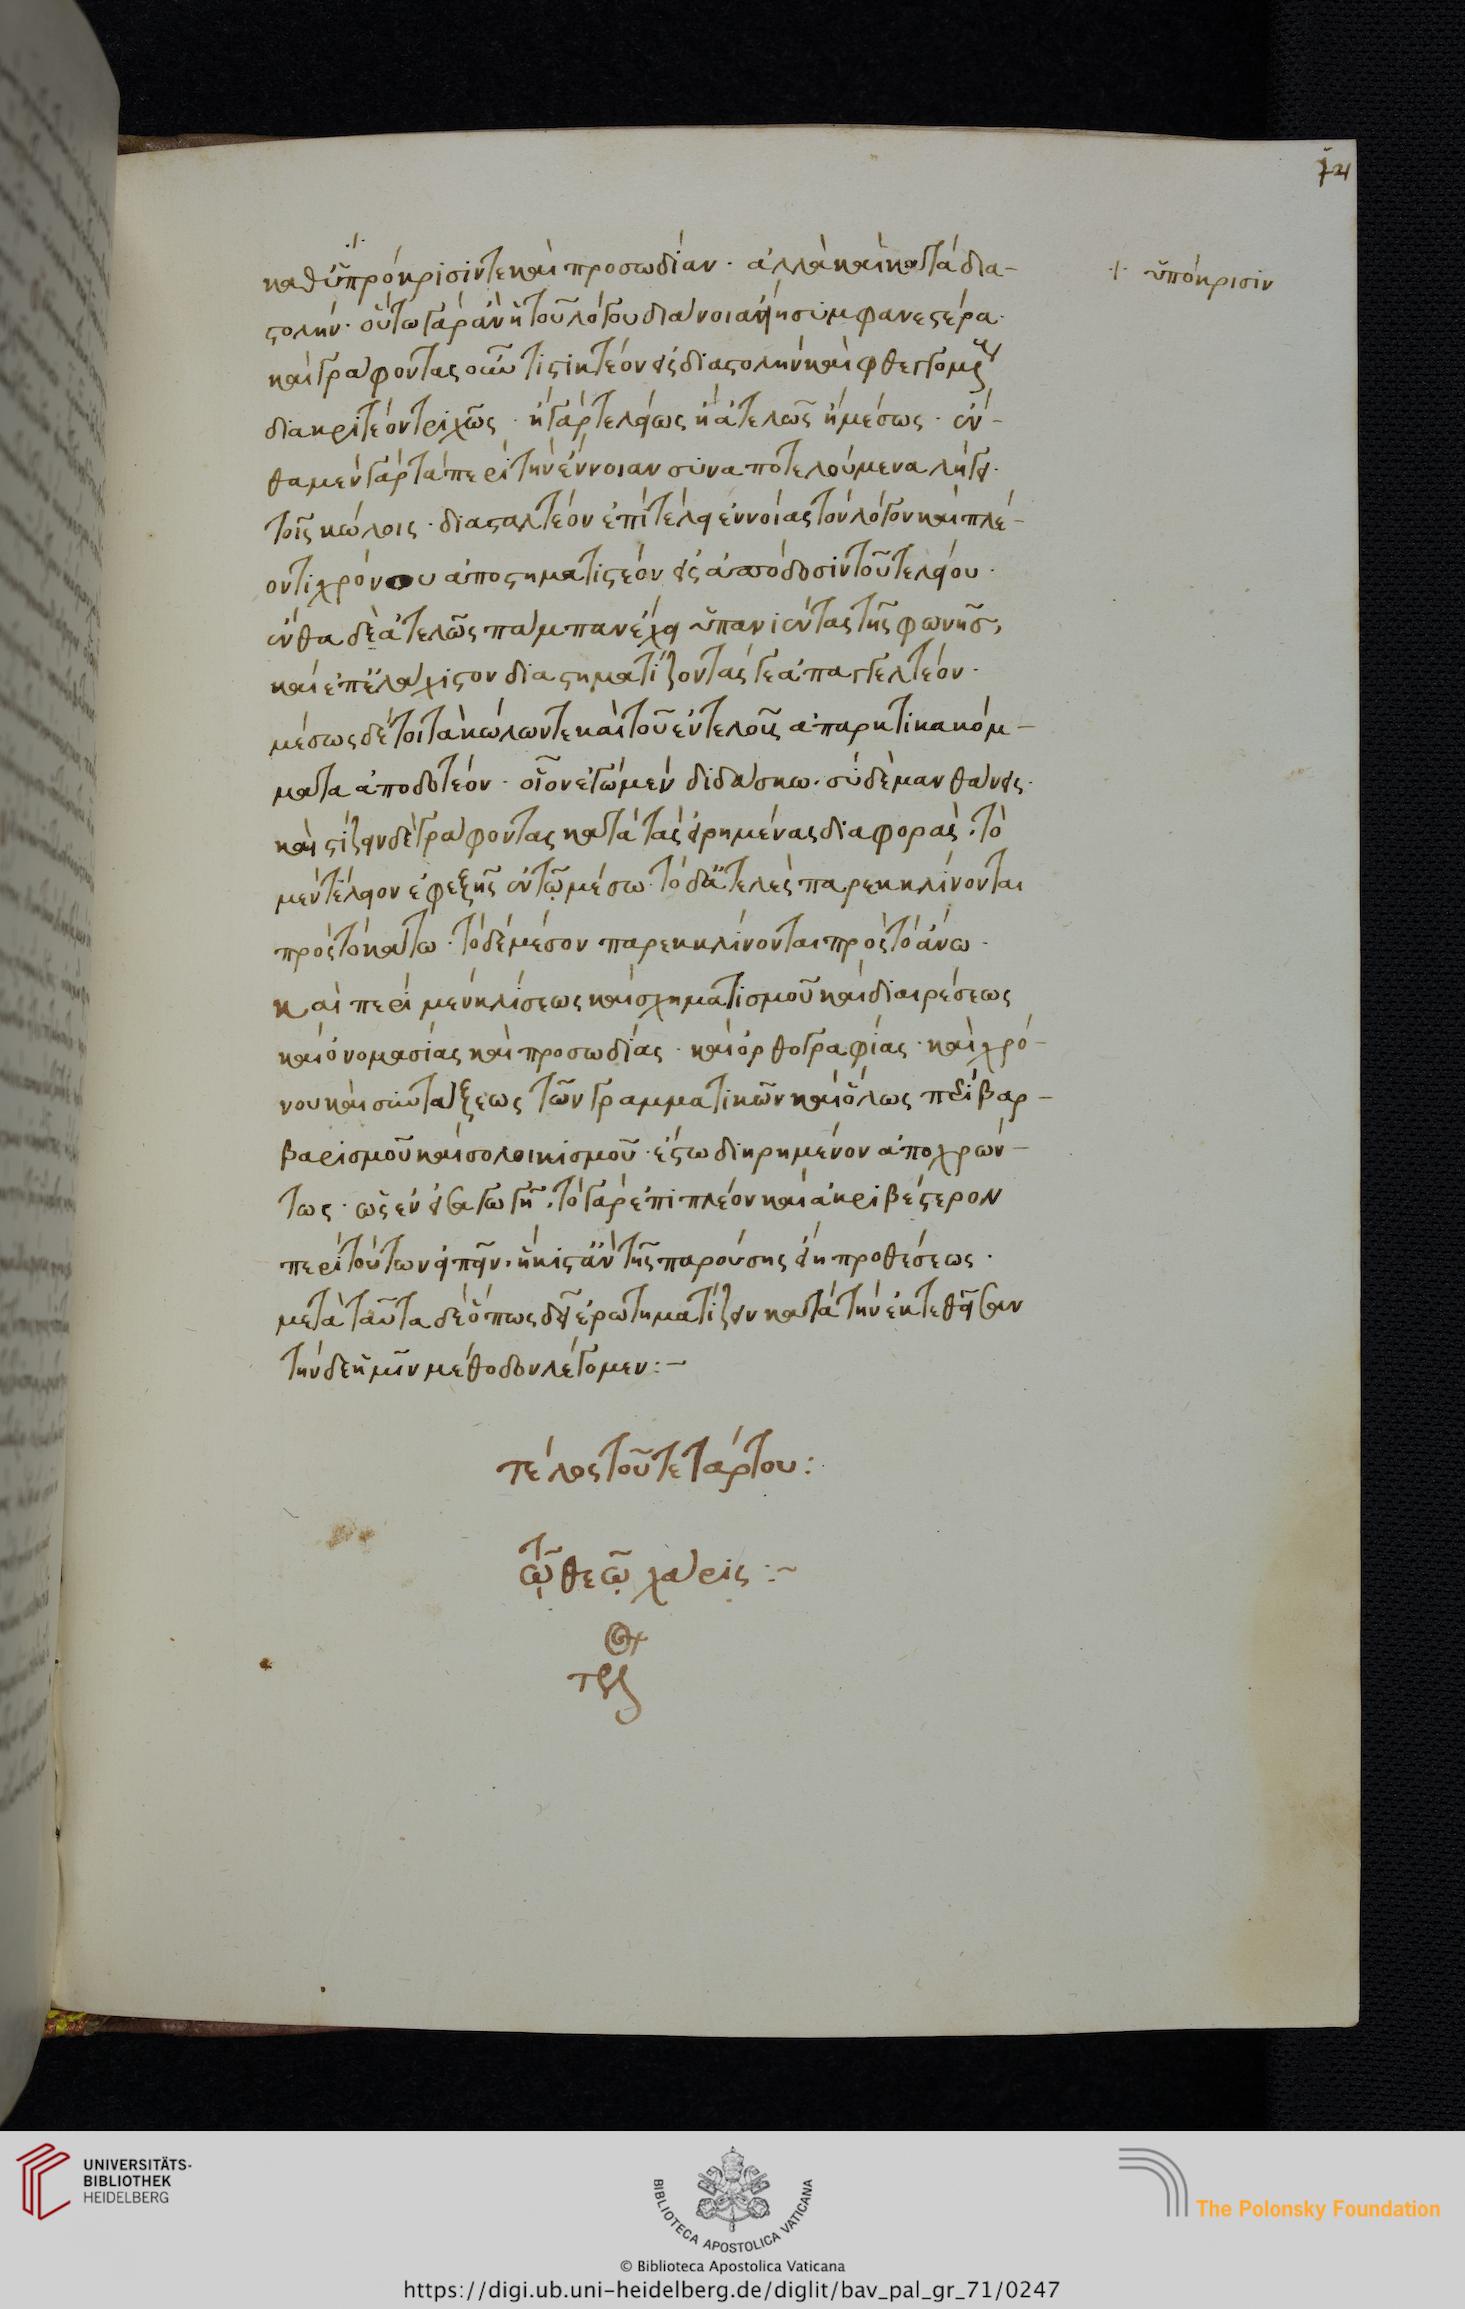 74
καθ' ὑπρόκρισίν τε καὶ προσωδίαν· ἀλλὰ καὶ κατὰ δια-
+ ὑπόκρισιν
στολήν· οὕτω γὰρ ἂν ἡ τοῦ λόγου διάνοια εἴη συμφανεστέρα·
καὶ γράφοντας οὖν τι στικτέον εἰς διαστολὴν καὶ φθεγγομένους
διακριτέον τριχῶς· ἢ γὰρ τελείως ἢ ἀτελῶς ἢ μέσως· ἐν-
θα μὲν γὰρ τὰ περὶ τὴν ἔννοιαν συναποτελούμενα λήγει
τοῖς κώλοις· διασταλτέον ἐπὶ τέλει ἐννοίας τὸν λόγον καὶ πλέ-
οντι χρόνου ἀποστηματιστέον εἰς ἀπόδοσιν τοῦ τελείου·
ἔνθα δὲ ἀτελῶς πάμπαν ἔχει ὑπανιέντας τῆς φωνῆς,
καὶ ἐπ' ἐλάχιστον διαστηματίζοντάς γε ἀπαγγελτέον·
μέσως δέ τοι τὰ κώλων τε καὶ τοῦ ἐντελοῦς ἀπαρκτικὰ κόμ-
ματα ἀποδοτέον· οἷον ἐγὼ μὲν διδάσκω· σὺ δὲ μανθάνεις·
καὶ στίζειν δὲ γράφοντας κατὰ τὰς εἰρημένας διαφοράς· τὸ
μὲν τέλειον ἐφεξῆς ἐν τῷ μέσω· τὸ δ' ἀτελὲς παρεκκλίνονται
πρὸς τὸ κάτω· τὸ δὲ μέσον παρεκκλίνονται πρὸς τὸ ἄνω·
καὶ περὶ μὲν κλίσεως καὶ σχηματισμοῦ καὶ διαιρέσεως
καὶ ὀνομασίας καὶ προσωδίας· καὶ ὀρθογραφίας· καὶ χρό-
νου καὶ συντάξεως τῶν γραμματικῶν καὶ ὅλως περὶ βαρ-
βαρισμοῦ καὶ σολοικισμοῦ· ἔστω διῃρημένον ἀποχρών-
τως· ὡς ἐν εἰσαγωγῇ· τὸ γὰρ ἐπιπλέον καὶ ἀκριβέστερον
περὶ τούτων εἰπεῖν, ἥκιστ' ἂν τῆς παρούσης εἴη προθέσεως·
μετὰ ταῦτα δὲ ὅπως δεῖ ἐρωτηματίζειν κατὰ τὴν ἐκτεθεῖσαν
τήνδε ἡμῖν μέθοδον λέγομεν:-
τέλος τοῦ τετάρτου:
τῷ θεῷ χάρις:~
UNIVERSITÄTS-
BIBLIOTHEK
HEIDELBERG
BIBLIOTECA APOSTOLICA VATICANA
The Polonsky Foundation
© Biblioteca Apostolica Vaticana
https://digi.ub.uni-heidelberg.de/diglit/bav_pal_gr_71/0247